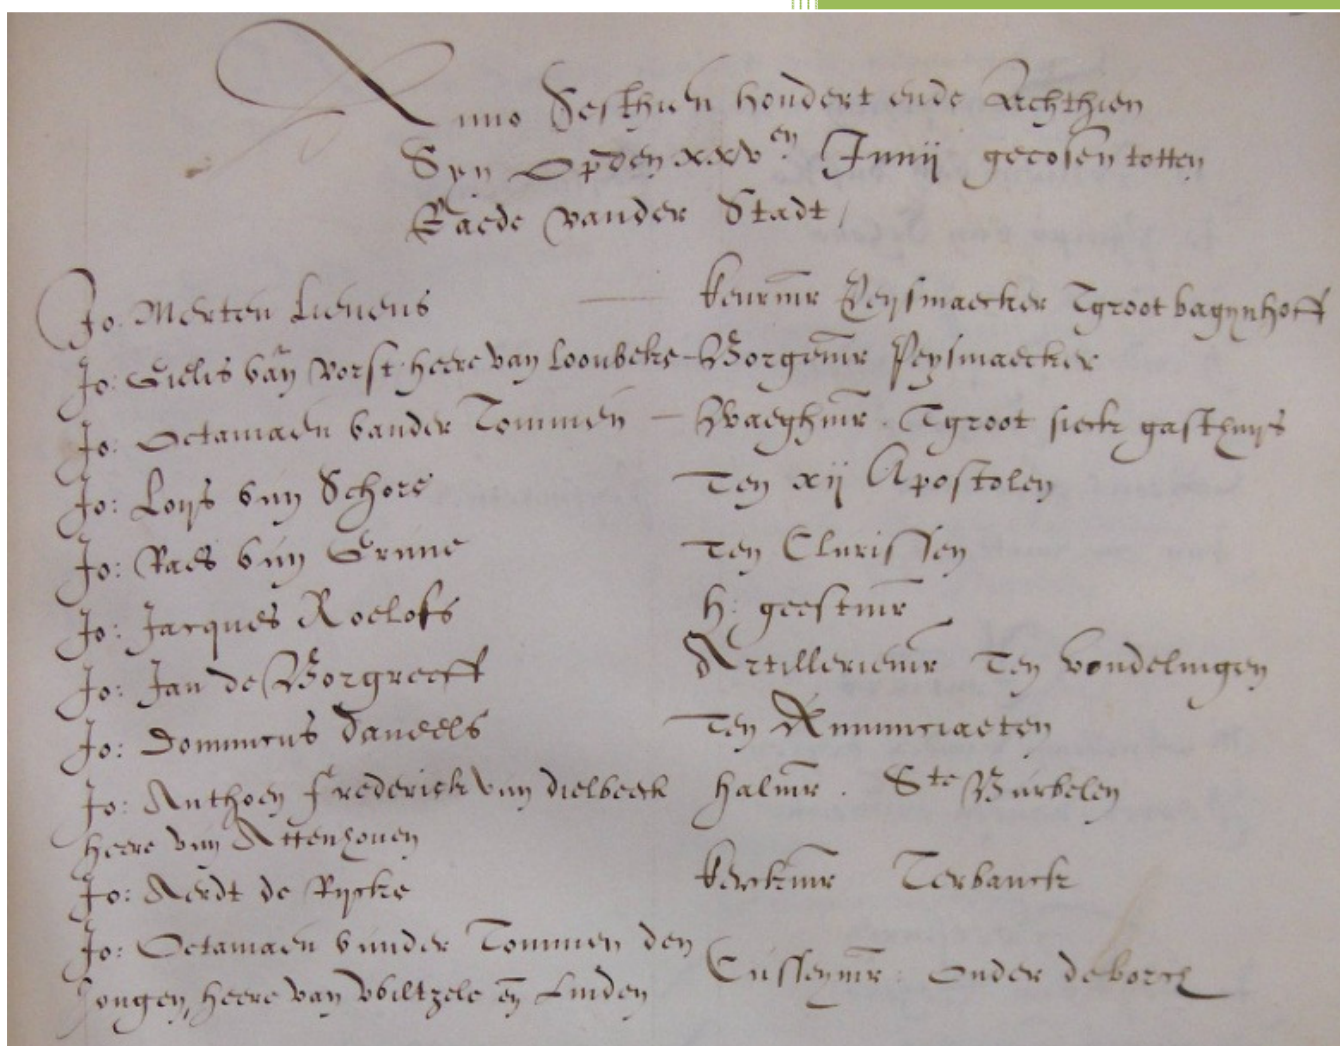 Anno Sesthien hondert ende Achthien
Syn Opden xxv en Junij gecosen totten
Raede vander Stadt /
Jo: Merten Lievens — keurmr Peysmaecker Tgroot bagynhoff
Jo: Gielis van Vorst heere van Loonbeke - Borgemr Peysmaecker
Jo: Octamaen vander Tommen — Waeghmr. Tgroot sieck gasthuys
Jo: Loijs van Schore Ten xij Apostolen
Jo: Raes van Grave Ten Clarissen
Jo: Jacques Roelofs H. geestmr
Jo: Jan de Borgreeff Artilleriemr Ten vondelingen
Jo: Dominicus Daneels Ten Annunciaeten
Jo: Anthoen Frederick van Dielbeeck halmr. Ste Barbelen
heere van Attenhoven
Jo: Aerdt de Rycke kerckmr Terbanck
Jo: Octamaen vander Tommen den
Jongen, heere van Wiltzele en Linden Cussenmr. Onder deborch